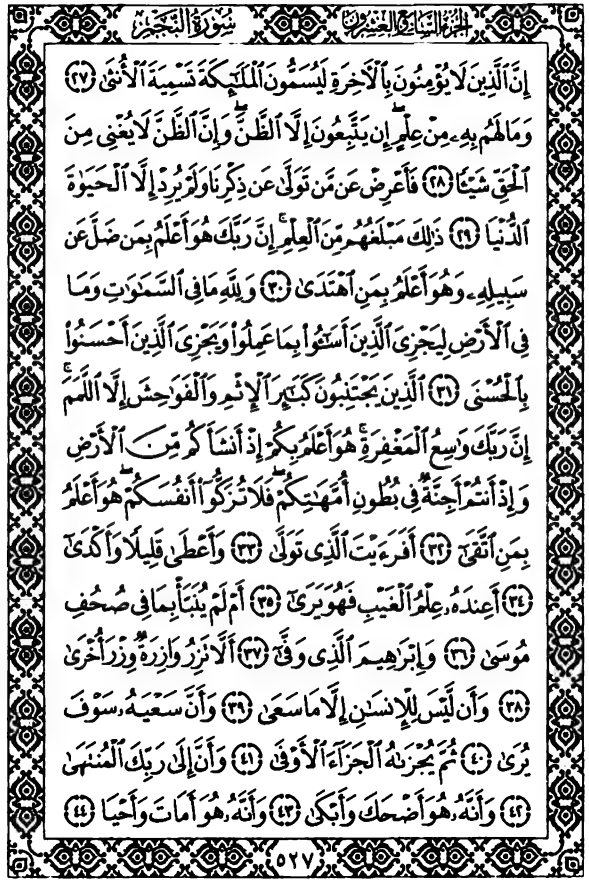 سُورَةُ النَّجْمِ
الجُزْءُ السَّابِعُ وَالعِشْرُونَ
إِنَّ الَّذِينَ لَا يُؤْمِنُونَ بِالْآخِرَةِ لَيُسَمُّونَ الْمَلَٰٓئِكَةَ تَسْمِيَةَ الْأُنثَىٰ ٢٧
وَمَا لَهُم بِهِۦ مِنْ عِلْمٍ ۖ إِن يَتَّبِعُونَ إِلَّا الظَّنَّ ۖ وَإِنَّ الظَّنَّ لَا يُغْنِى مِنَ
الْحَقِّ شَيْـًٔا ٢٨ فَأَعْرِضْ عَن مَّن تَوَلَّىٰ عَن ذِكْرِنَا وَلَمْ يُرِدْ إِلَّا الْحَيَوٰةَ
الدُّنْيَا ٢٩ ذَٰلِكَ مَبْلَغُهُم مِّنَ الْعِلْمِ ۚ إِنَّ رَبَّكَ هُوَ أَعْلَمُ بِمَن ضَلَّ عَن
سَبِيلِهِۦ وَهُوَ أَعْلَمُ بِمَنِ اهْتَدَىٰ ٣٠ وَلِلَّهِ مَا فِى السَّمَٰوَٰتِ وَمَا
فِى الْأَرْضِ لِيَجْزِىَ الَّذِينَ أَسَٰٓـُٔوا۟ بِمَا عَمِلُوا۟ وَيَجْزِىَ الَّذِينَ أَحْسَنُوا۟
بِالْحُسْنَى ٣١ الَّذِينَ يَجْتَنِبُونَ كَبَٰٓئِرَ الْإِثْمِ وَالْفَوَٰحِشَ إِلَّا اللَّمَمَ ۚ
إِنَّ رَبَّكَ وَٰسِعُ الْمَغْفِرَةِ ۚ هُوَ أَعْلَمُ بِكُمْ إِذْ أَنشَأَكُم مِّنَ الْأَرْضِ
وَإِذْ أَنتُمْ أَجِنَّةٌ فِى بُطُونِ أُمَّهَٰتِكُمْ ۖ فَلَا تُزَكُّوٓا۟ أَنفُسَكُمْ ۖ هُوَ أَعْلَمُ
بِمَنِ اتَّقَىٰٓ ٣٢ أَفَرَءَيْتَ الَّذِى تَوَلَّىٰ ٣٣ وَأَعْطَىٰ قَلِيلًا وَأَكْدَىٰٓ
٣٤ أَعِندَهُۥ عِلْمُ الْغَيْبِ فَهُوَ يَرَىٰٓ ٣٥ أَمْ لَمْ يُنَبَّأْ بِمَا فِى صُحُفِ
مُوسَىٰ ٣٦ وَإِبْرَٰهِيمَ الَّذِى وَفَّىٰٓ ٣٧ أَلَّا تَزِرُ وَازِرَةٌ وِزْرَ أُخْرَىٰ
٣٨ وَأَن لَّيْسَ لِلْإِنسَٰنِ إِلَّا مَا سَعَىٰ ٣٩ وَأَنَّ سَعْيَهُۥ سَوْفَ
يُرَىٰ ٤٠ ثُمَّ يُجْزَىٰهُ الْجَزَآءَ الْأَوْفَىٰ ٤١ وَأَنَّ إِلَىٰ رَبِّكَ الْمُنتَهَىٰ
٤٢ وَأَنَّهُۥ هُوَ أَضْحَكَ وَأَبْكَىٰ ٤٣ وَأَنَّهُۥ هُوَ أَمَاتَ وَأَحْيَا ٤٤
٥٢٧